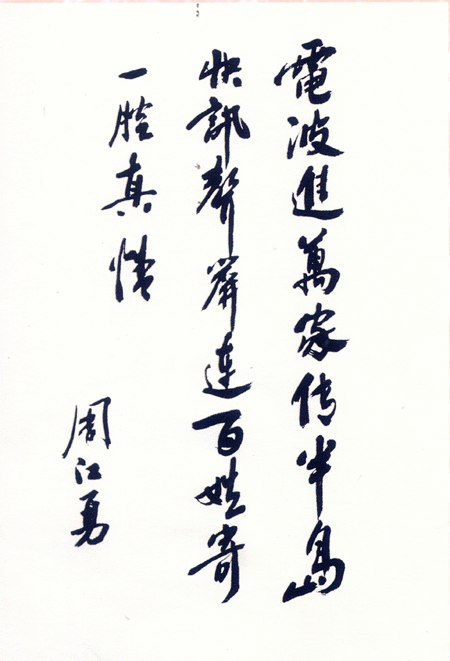 電波進萬家传半島
快訊聲聲連百姓寄
一腔真情
周江勇